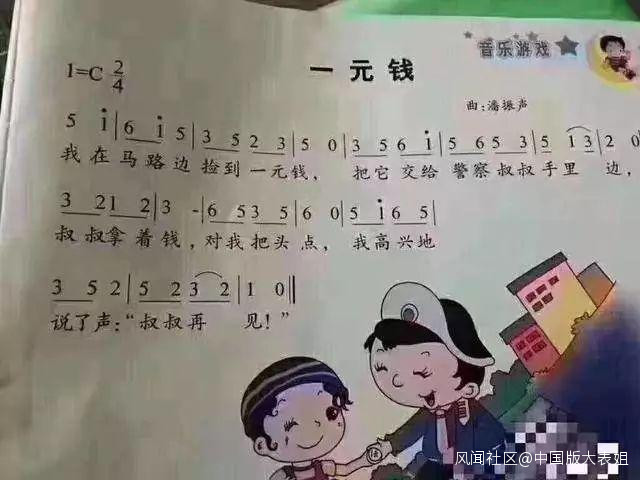 音乐游戏
1=C 2/4
一元钱
曲:潘振声
5 i|6 i 5|3 5 2 3|5 0|3 5 6 i|5 6 5 3|5 1 3|2 0
我在马路边捡到一元钱， 把它交给警察叔叔手里边，
3 2 1 2|3 -|6 5 3 5|6 0|5 i 6 5|
叔叔拿着钱，对我把头点， 我高兴地
3 5 2|5 2 3 2|1 0‖
说了声:“叔叔再 见！”
风闻社区@中国版大表姐